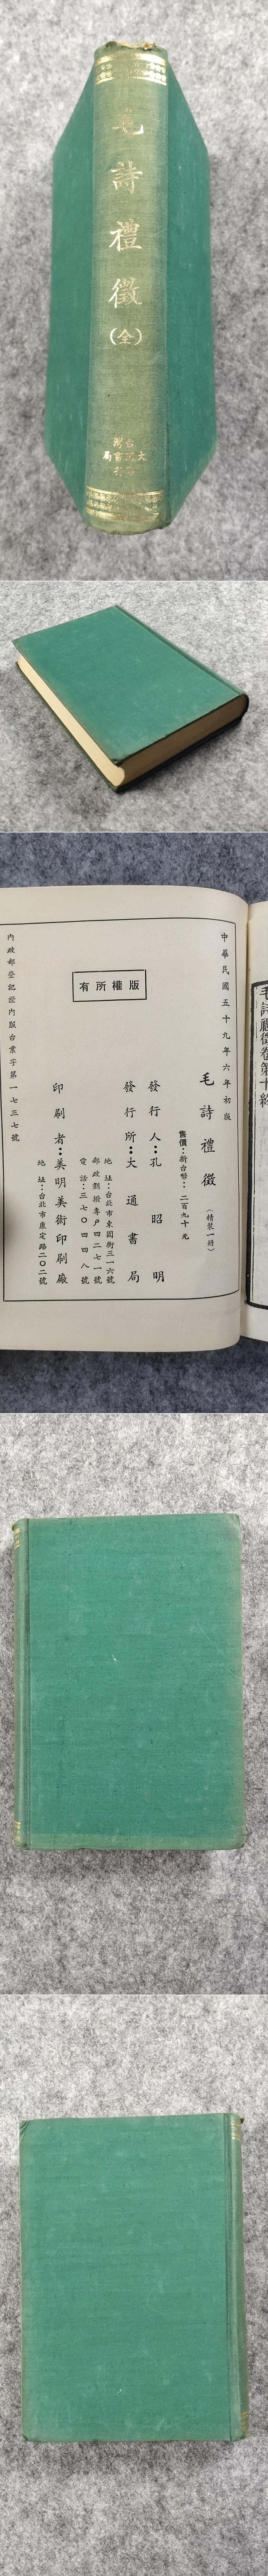 毛詩禮徵
（全）
台灣
大通書局
印行
毛詩禮徵卷第十終
中華民國五十九年六月初版
毛詩禮徵（精裝一冊）
售價：新台幣：二百九十元
發行人：孔昭明
發行所：大通書局
地址：台北市東園街三一六號
郵政劃撥專戶四二七一號
電話：三七〇四四八號
印刷者：美明美術印刷廠
地址：台北市康定路二〇二號
版權所有
內政部登記證內版台業字第一七三七號